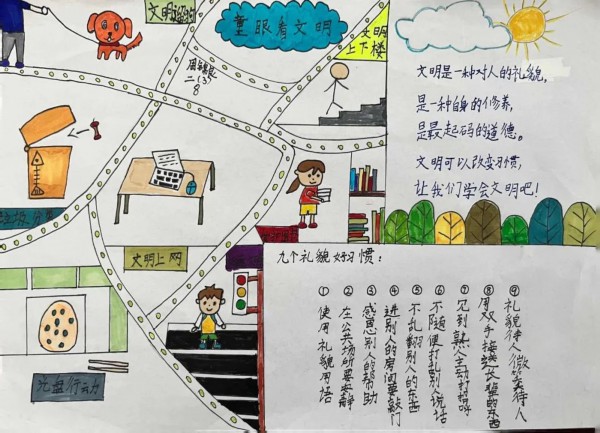 童眼看文明
文明
上下楼
二(3)
8
文明上网
光盘行动
文明是一种对人的礼貌,
是一种自身的修养,
是最起码的道德。
文明可以改变习惯,
让我们学会文明吧!
九个礼貌好习惯:
①使用礼貌用语
②在公共场所要安静
③感恩别人的帮助
④进别人的房间要敲门
⑤不乱翻别人的东西
⑥不随便打乱别人说话
⑦见到熟人主动打招呼
⑧用双手接长辈的东西
⑨礼貌待人微笑待人